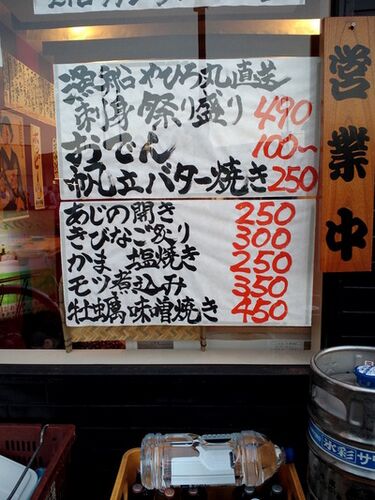 漁船やひろ丸直送
刺身祭り盛り 490
おでん 100〜
帆立バター焼き 250
あじの開き 250
きびなご炙り 300
かま塩焼き 250
モツ煮込み 350
牡蠣味噌焼き 450
営業中
水彩サワー